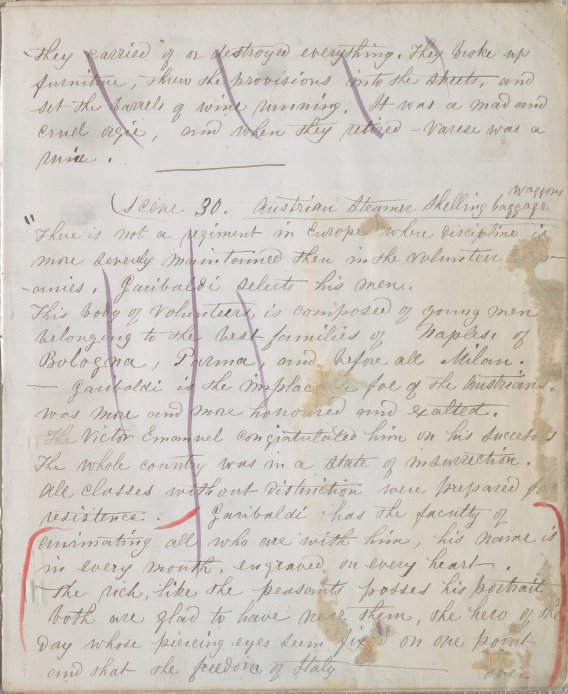 they carried of or destroyed everything. They broke up
furniture, threw the provisions into the streets, and
set the barrels of wine running. It was a mad and
cruel orgie, and when they retired – Varese was a
ruin.
Scene 30. Austrian Steamer Shelling baggage waggons
"There is not a regiment in Europe where discipline is
more severly maintained then in the volunteer
-annies. Garibaldi selects his men.
This body of Volunteers, is composed of young men
belonging to the best families of Naples, of
Bologna, Parma, and before all Milan.
— Garibaldi is the implacable foe of the Austrians.
was more and more honoured and exalted.
The Victor Emanuel congratulated him on his success
The whole country was in a state of insurrection.
All classes without distinction were prepared for
resistence. Garibaldi has the faculty of
annimating all who are with him, his name is
in every mouth, engraved on every heart.
The rich, like the peasants posses his portrait
both are glad to have near them, the hero of the
day whose piercing eyes seem fixed on one point
and that the freedom of Italy over